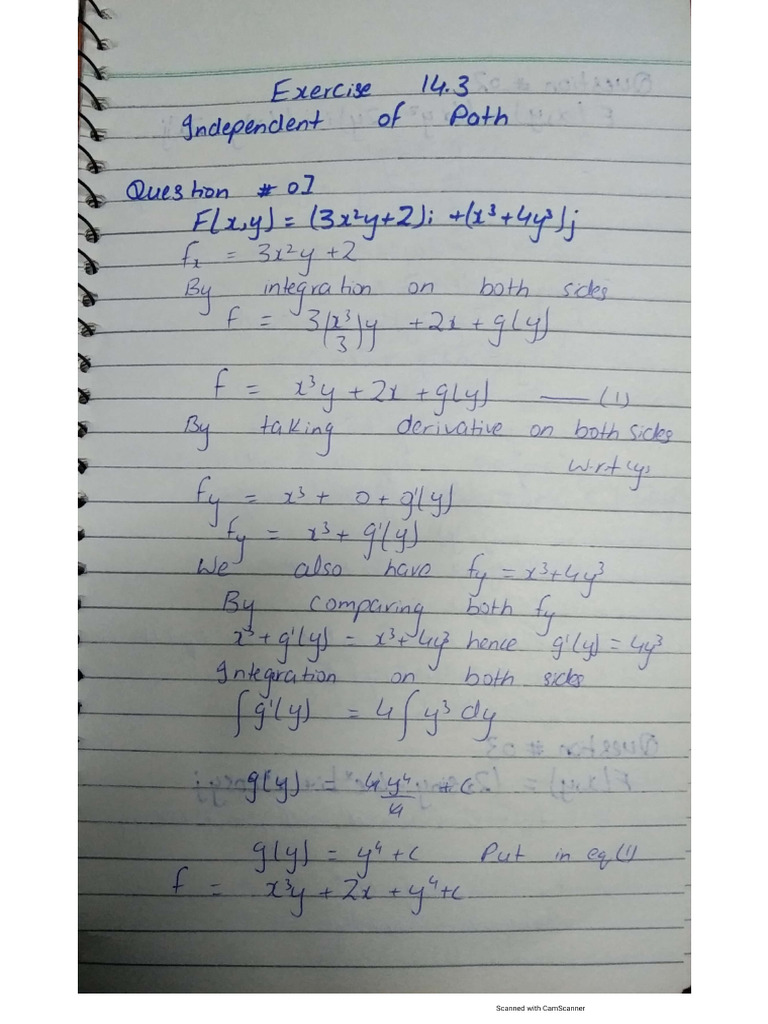 Exercise 14.3
Independent of Path
Question # 01
F(x,y) = (3x²y+2)i +(x³+4y³)j
fx = 3x²y+2
By integration on both sides
f = 3(x³/3)y +2x+g(y)
f = x³y+2x+g(y) —— (1)
By taking derivative on both sides
w.r.t (y)
fy = x³+ 0+g'(y)
fy = x³+ g'(y)
We also have fy = x³+4y³
By comparing both fy
x³+g'(y) = x³+4y³ hence g'(y) = 4y³
Integration on both sides
∫g'(y) = 4∫y³dy
g(y) = 4y⁴/4 +c
g(y) = y⁴+c Put in eq(1)
f = x³y+2x+y⁴+c
Scanned with CamScanner